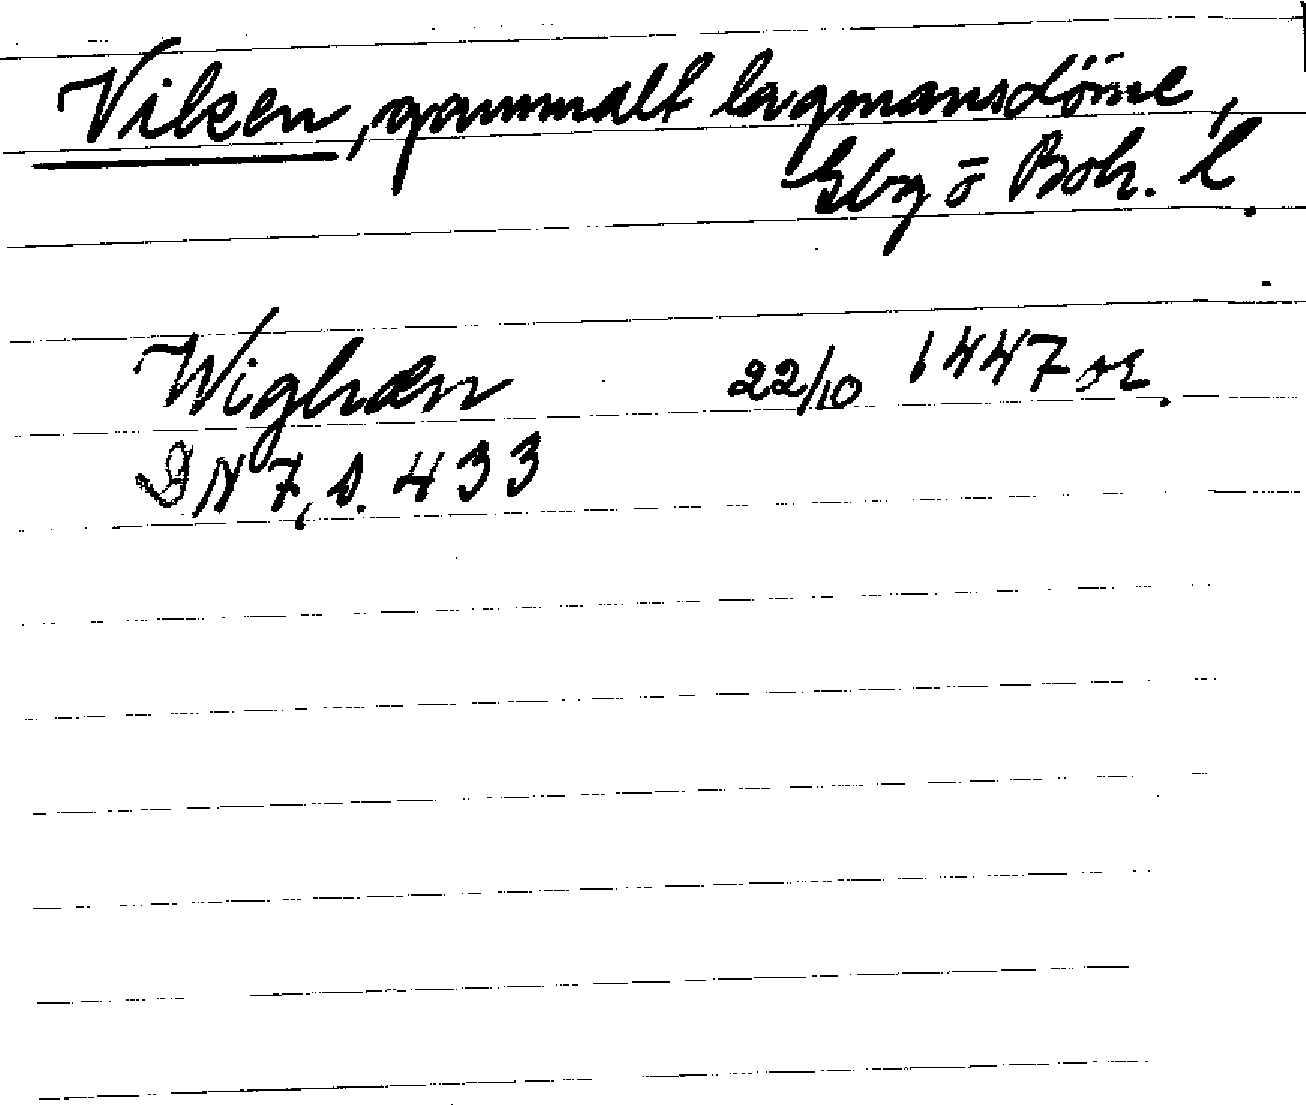 Viken, gammalt lagmansdöme,
Gbg o Boh. l.
Wighæn 22/10 1447 or.
DN 7, s. 433